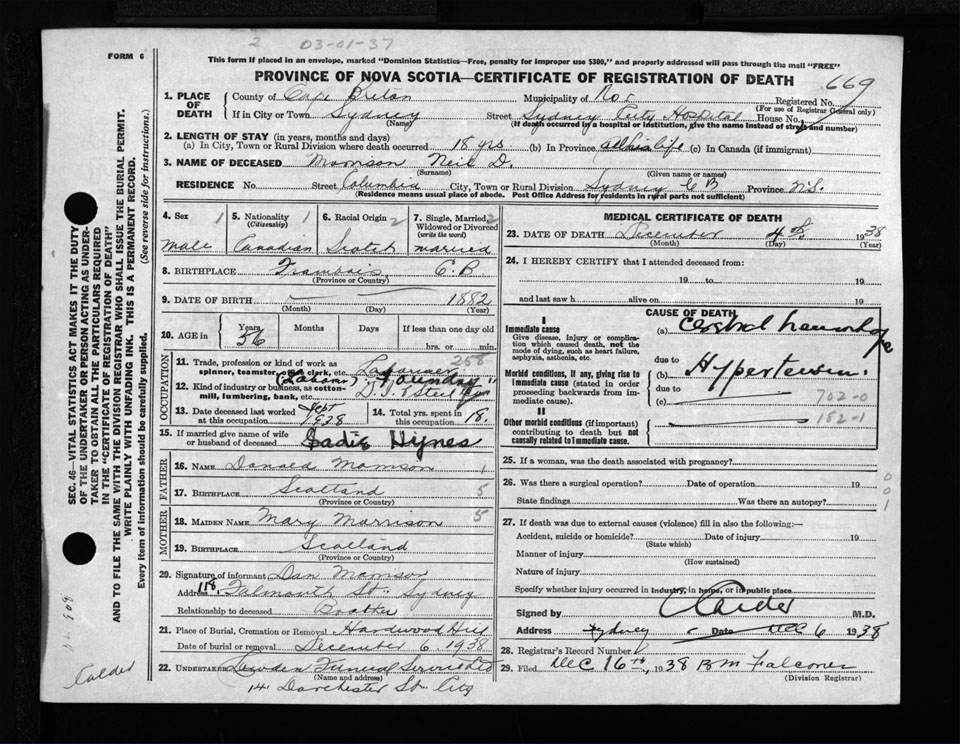 2 03-01-37
FORM 6
This form if placed in an envelope, marked "Dominion Statistics—Free, penalty for improper use $300," and properly addressed will pass through the mail "FREE"
PROVINCE OF NOVA SCOTIA—CERTIFICATE OF REGISTRATION OF DEATH
669
1. PLACE OF DEATH
County of Cape Breton Municipality of Registered No.
(For use of Registrar General only)
If in City or Town Sydney Street Sydney City Hospital House No.
(Name) (If death occurred in a hospital or institution, give the name instead of street and number)
2. LENGTH OF STAY (in years, months and days)
(a) In City, Town or Rural Division where death occurred 18 yrs (b) In Province all his life (c) In Canada (if immigrant)
3. NAME OF DECEASED Morrison Neil D.
(Surname) (Given name or names)
RESIDENCE No. Street Columbia City, Town or Rural Division Sydney C B Province N.S.
(Residence means usual place of abode. Post Office Address for residents in rural parts not sufficient)
4. Sex 1 5. Nationality 1 (Citizenship) 6. Racial Origin 2 7. Single, Married, 2 Widowed or Divorced (write the word)
Male Canadian Scotch married
8. BIRTHPLACE Framboise C. B
(Province or Country)
9. DATE OF BIRTH 1882
(Month) (Day) (Year)
10. AGE in Years Months Days If less than one day
56 hrs. or min.
11. Trade, profession or kind of work as spinner, teamster, clerk, etc. Labourer 258
(Labour) Foundry "
12. Kind of industry or business, as cotton-mill, lumbering, bank, etc. D. I. & Steel
13. Date deceased last worked at this occupation Sept 1938 14. Total yrs. spent in this occupation 18.
15. If married give name of wife or husband of deceased Sadie Hynes
FATHER
16. NAME Donald Morrison 1
17. BIRTHPLACE Scotland 5
(Province or Country)
MOTHER
18. MAIDEN NAME Mary Morrison 5
19. BIRTHPLACE Scotland
(Province or Country)
20. Signature of informant Dan Morrison
Address 118 Falmouth St. Sydney
Relationship to deceased Brother
21. Place of Burial, Cremation or Removal Hardwood Hill
Date of burial or removal December 6 1938
22. UNDERTAKER Funeral Service Ltd
(Name and address)
14 Dorchester St. City
MEDICAL CERTIFICATE OF DEATH
23. DATE OF DEATH December 4th 1938
(Month) (Day) (Year)
24. I HEREBY CERTIFY that I attended deceased from:
19 to 19
and last saw h alive on 19
CAUSE OF DEATH
I
Immediate cause
Give disease, injury or complication which caused death, not the mode of dying, such as heart failure, asphyxia, asthenia, etc.
(a) Cerebral hemorrhage
due to
Morbid conditions, if any, giving rise to immediate cause (stated in order proceeding backwards from immediate cause).
(b) Hypertension.
due to
(c) 702-0
II
Other morbid conditions (if important) contributing to death but not causally related to immediate cause.
182-1
25. If a woman, was the death associated with pregnancy?
26. Was there a surgical operation? Date of operation 19
State findings Was there an autopsy?
0
0
1
27. If death was due to external causes (violence) fill in also the following:—
Accident, suicide or homicide? Date of injury 19
(State which)
Manner of injury
(How sustained)
Nature of injury
Specify whether injury occurred in industry, in home, or in public place
Signed by Calder M.D.
Address Sydney Date Dec 6 1938
28. Registrar's Record Number
29. Filed Dec 16th, 1938 B M Falconer
(Division Registrar)
SEC. 46—VITAL STATISTICS ACT MAKES IT THE DUTY OF THE UNDERTAKER OR PERSON ACTING AS UNDERTAKER TO OBTAIN ALL THE PARTICULARS REQUIRED IN THE "CERTIFICATE OF REGISTRATION OF DEATH"
AND TO FILE THE SAME WITH THE DIVISION REGISTRAR WHO SHALL ISSUE THE BURIAL PERMIT.
WRITE PLAINLY WITH UNFADING INK. THIS IS A PERMANENT RECORD.
Every item of information should be carefully supplied. (See reverse side for instructions.)
Calder